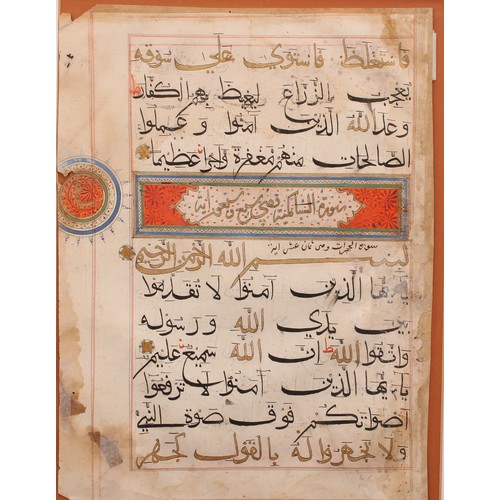 فاستغلظ فاستوى على سوقه
يعجب الزراع ليغيظ بهم الكفار
وعد الله الذين آمنوا وعملوا
الصالحات منهم مغفرة وأجرا عظيما
سورة
سورة الحجرات وهي ثمان عشر آية
بسم الله الرحمن الرحيم
يا أيها الذين آمنوا لا تقدموا
بين يدي الله ورسوله
واتقوا الله ط إن الله سميع عليم
يا أيها الذين آمنوا لا ترفعوا
أصواتكم فوق صوة النبي
ولا تجهروا له بالقول كجهر